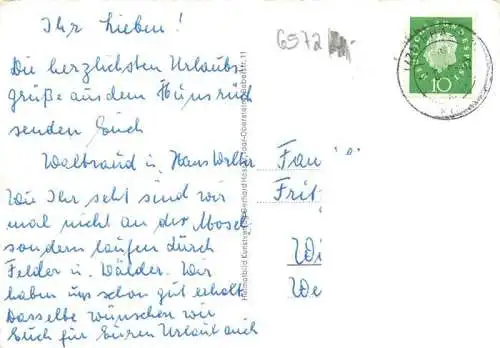 Ihr Lieben!
Die herzlichsten Urlaubs-
grüße aus dem Hunsrück
senden Euch
Waltraud u. Hans Walter
Wie Ihr seht sind wir
mal nicht an der Mosel
sondern laufen durch
Felder u. Wälder. Wir
haben uns schon gut erholt
Dasselbe wünschen wir
Euch für Euren Urlaub auch
6572
Heimatbild Kunstverlag Gerhard
10
Fam
Frit
Wi
We